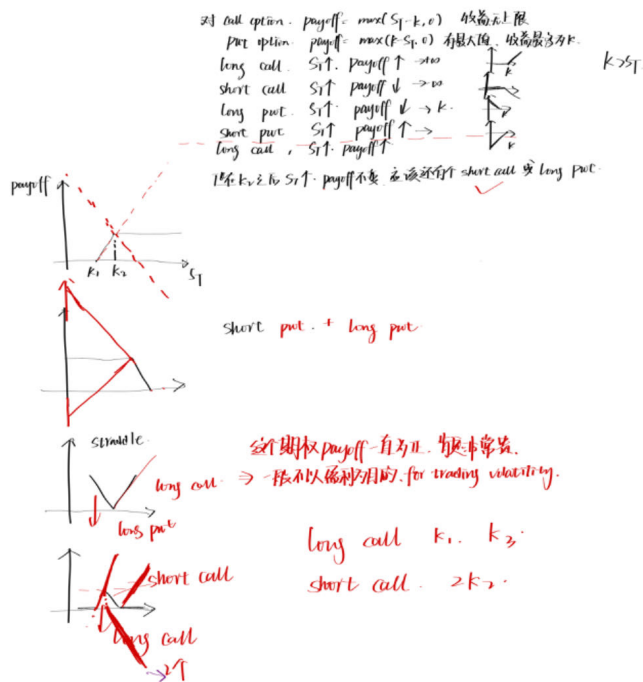 对 call option. payoff = max(ST-k,0) 收益无上限
put option. payoff = max(k-ST,0) 有最大值, 收益最多为k.
long call. ST↑. payoff↑ → ∞
k
k>ST
short call ST↑ payoff↓ → ∞
long put. ST↑ payoff↓ → k.
short put ST↑ payoff↑ →
long call, ST↑. payoff↑
但在k2之后 ST↑. payoff不变 应该还有个 short call 或 long put.
payoff
k1 k2 ST
short put. + long put
straddle.
这个期权payoff一直为正,
long call ⇒ 一般不以盈利为目的. for trading volatility.
long put
long call k1. k3.
short call
short call. 2k2.
long call
2个